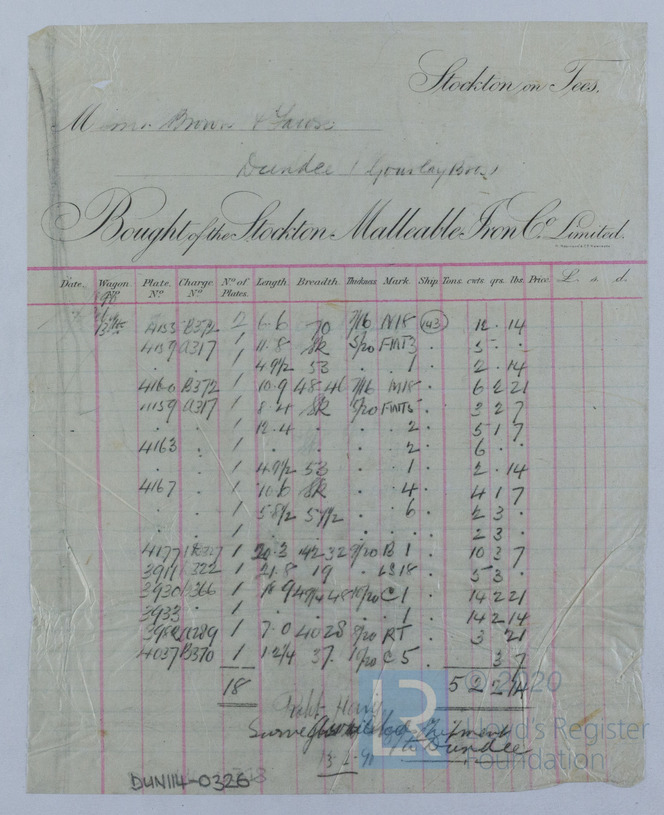 Stockton on Tees.
M Brown &
Dundee / Gourlay Bros
Bought of the Stockton Malleable Iron Co. Limited.
Date. Wagon No. Plate No. Charge No. No. of Plates. Length. Breadth. Thickness Mark. Ship Tons. cwts. qrs. lbs. Price. £ s. d.
4153 B372 2 6.6 70 7/16 M18 143 12 . 14
4159 A317 1 11.8 SK 5/20 FMT3 . 5 . .
. . 1 4.9½ 53 . . 1 . 2 . 14
4160 B372 1 10.9 48.46 7/16 M18 . 6 2 21
4159 A317 1 8.4 SK 5/20 FMT5 . 3 2 7
. . 1 12.4 . . . 2 . 5 1 7
4163 . 1 . . . . 2 . 6 . .
. . 1 4.9½ 53 . . 1 . 2 . 14
4167 . 1 10.6 SK . . 4 . 4 1 7
. . 1 5.8½ 57½ . . 6 . 2 3 .
. . 1 . . . . . . 2 3 .
4177 1 20.3 42 32 9/20 B 1 . 10 3 7
3911 322 1 21.8 19 . LS 18 . 5 3 .
3930 B366 1 18.9 48 10/20 C 1 . 14 2 21
3933 . 1 . . . . 1 . 14 2 14
289 1 7.0 40 28 8/20 RT . 3 . 21
4037 B370 1 1.2¼ 37. 10/20 C 5 . 3 7
18 5 2 2 14
Robt Henry
Surveyor Shipment
to Dundee
DUN114-0326
© 2020
LR
Lloyd's Register
Foundation